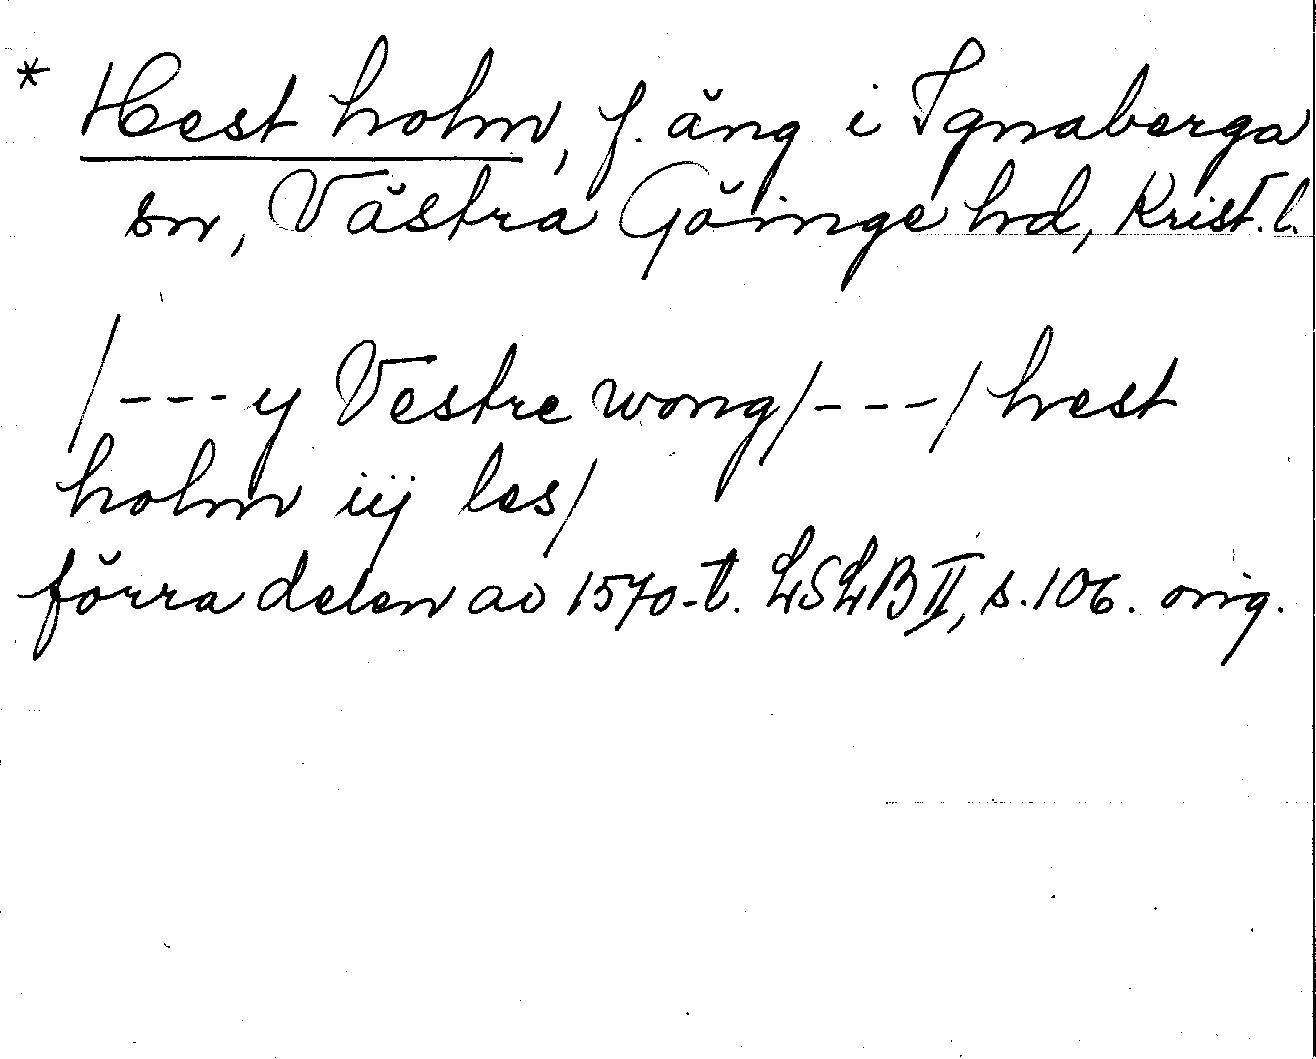 * Hest holm, f. äng i Ignaberga
sn, Västra Göinge hd, Krist. l.
/---y Vestre wong/---/ hest
holm iij les/
förra delen av 1570-t. LSLB II, s. 106. orig.